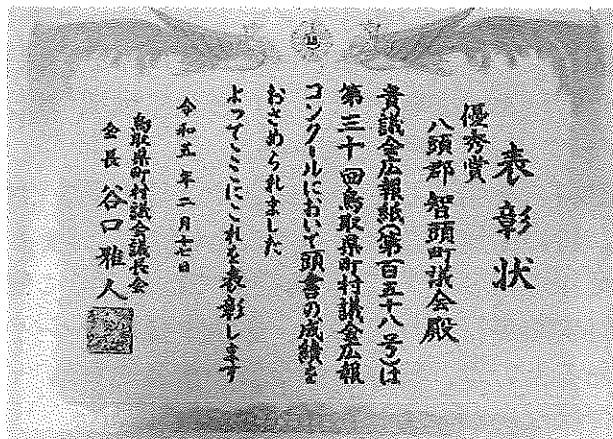 表彰状
優秀賞
八頭郡智頭町議会殿
貴議会広報紙(第百五十八号)は
第三十回鳥取県町村議会広報
コンクールにおいて頭書の成績を
おさめられました
よってここにこれを表彰します
令和五年二月十七日
鳥取県町村議会議長会
会長 谷口雅人